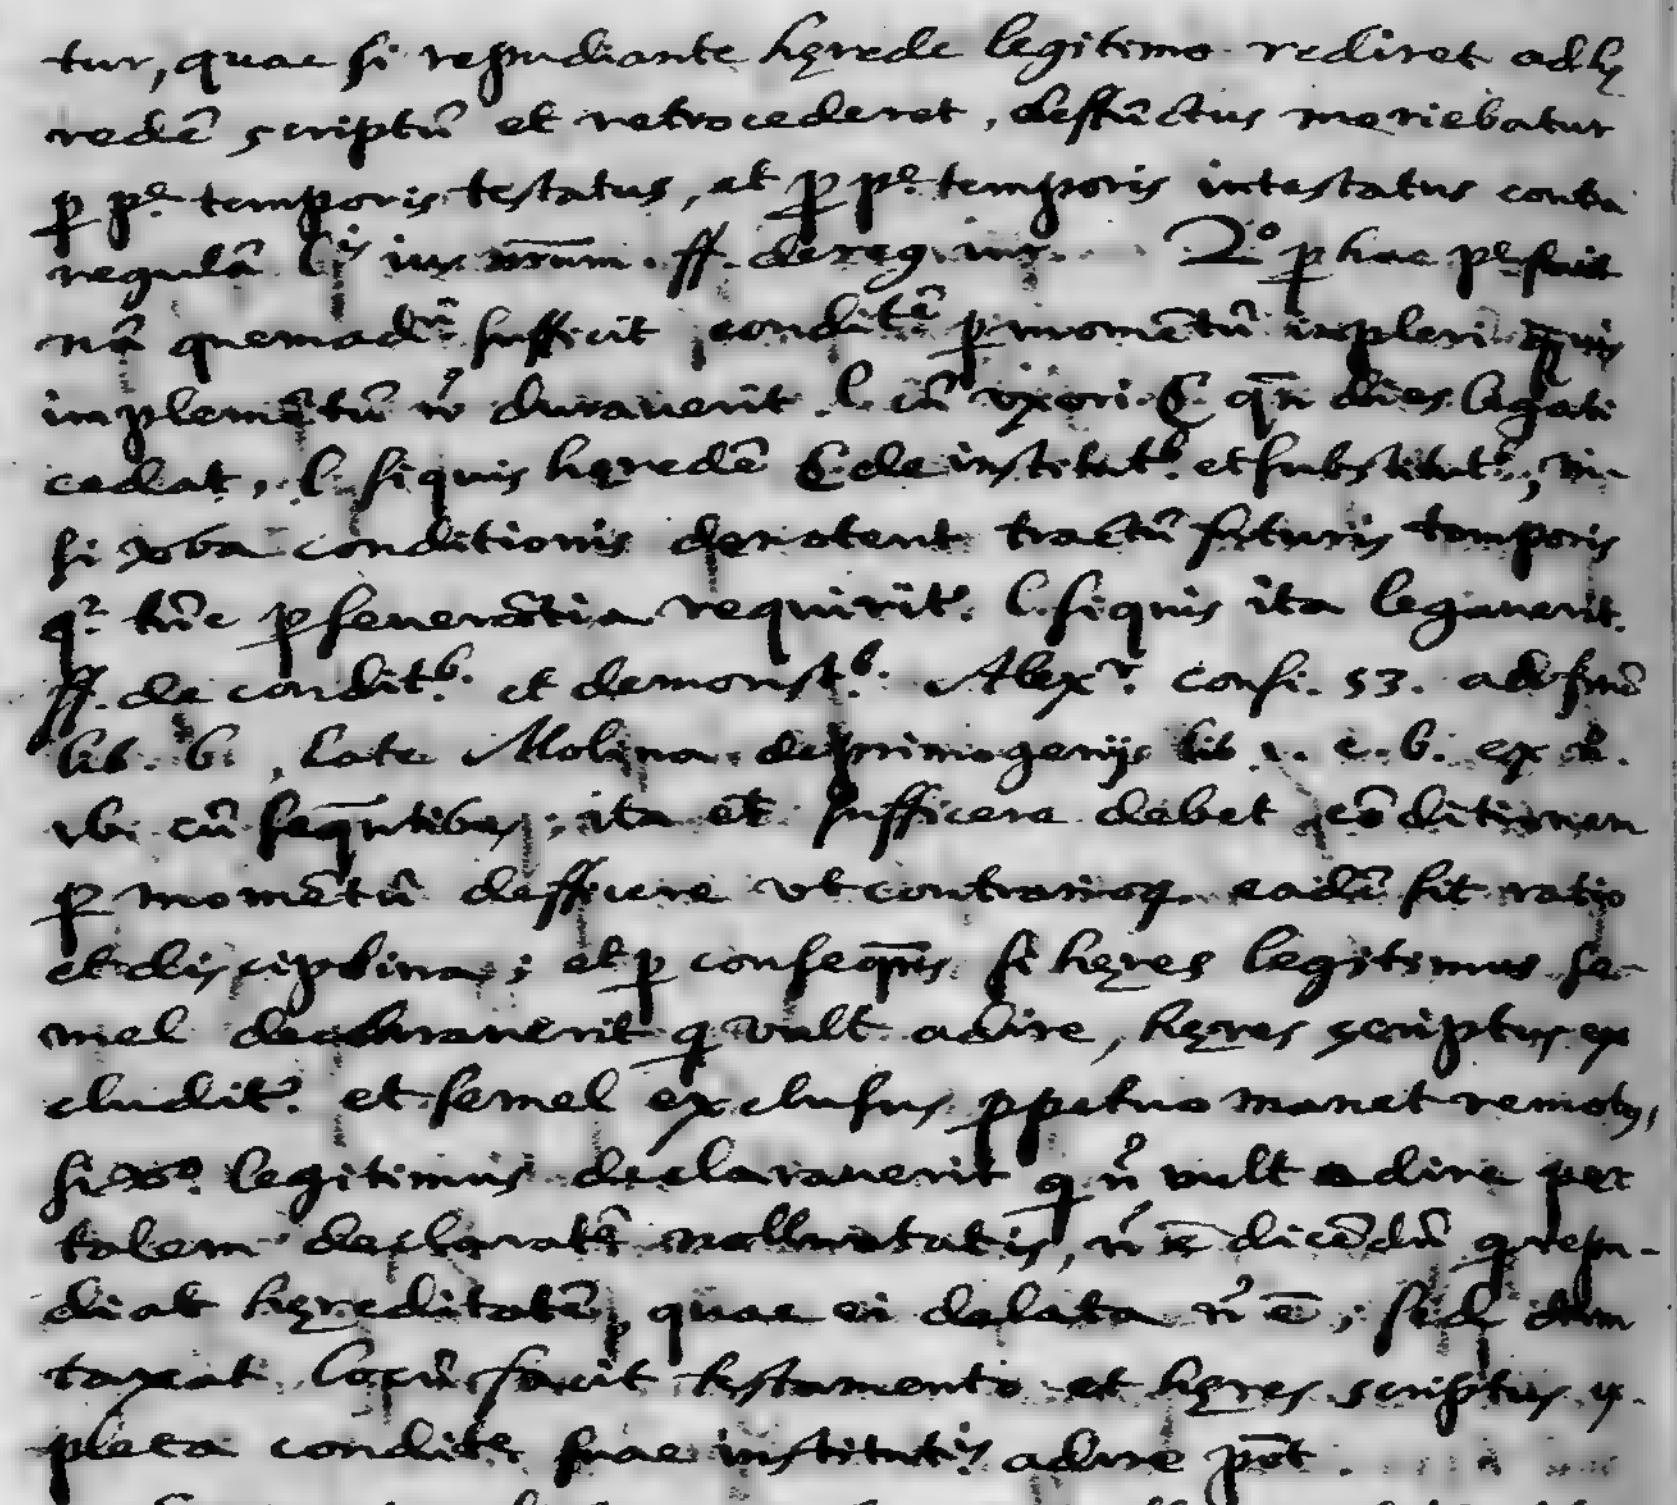 tur, quae si repudiante hęrede legitimo rediret ad hę
redē scriptū et retrocederet, deffūctus moriebatur
p pe. temporis testatus, et p pe. temporis intestatus contra
regulā l. ius nrūm. ff. de reg. iur. 2º p hac pe. facit
nā quemadū sufficit condit.ē p momētū impleri
implemētū nº durauerit l. cū vxori. C. qn̄ dies legati
cedat, l. si quis hęredē C. de institut.b. et substitut.b., ni-
si vba conditionis denotent tractū futuris temporis
qr. tūc pseuerātia requirit.r l. si quis ita legauerit.
ff. de condit.b. et demonst.b. Alexr. consi. 53. ad finē
lib. 6., late Molina de primogenijs lib 1. c. 6. ex n.
vbi cū seqn̄tibus; ita et sufficere debet cōditionem
p momētū defficere vt contrarioq. eadē sit ratio
et disciplina; et p conseqn̄s si hęres legitimus se-
mel declarauerit q vult adire, hęres scriptus ex
cludit.r et semel exclusus ppetuo manet remotus,
si vo. legitimus declarauerit q nº vult adire per
talem declarat.ē nolluntatis, nº ē dicēdū q repu-
diat hęreditatē, quae ei delata nº ē; sed dum
taxat locū facit testamento et hęres scriptus
pleta condit.e suae institut.is adire pōt.